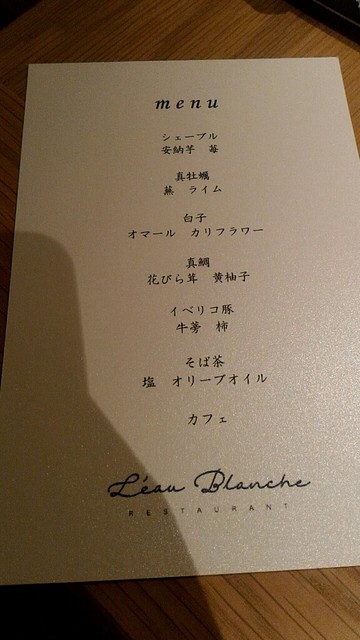 menu
シェーブル
安納芋　苺
真牡蠣
蕪　ライム
白子
オマール　カリフラワー
真鯛
花びら茸　黄柚子
イベリコ豚
牛蒡　柿
そば茶
塩　オリーブオイル
カフェ
L'éau Blanche
RESTAURANT